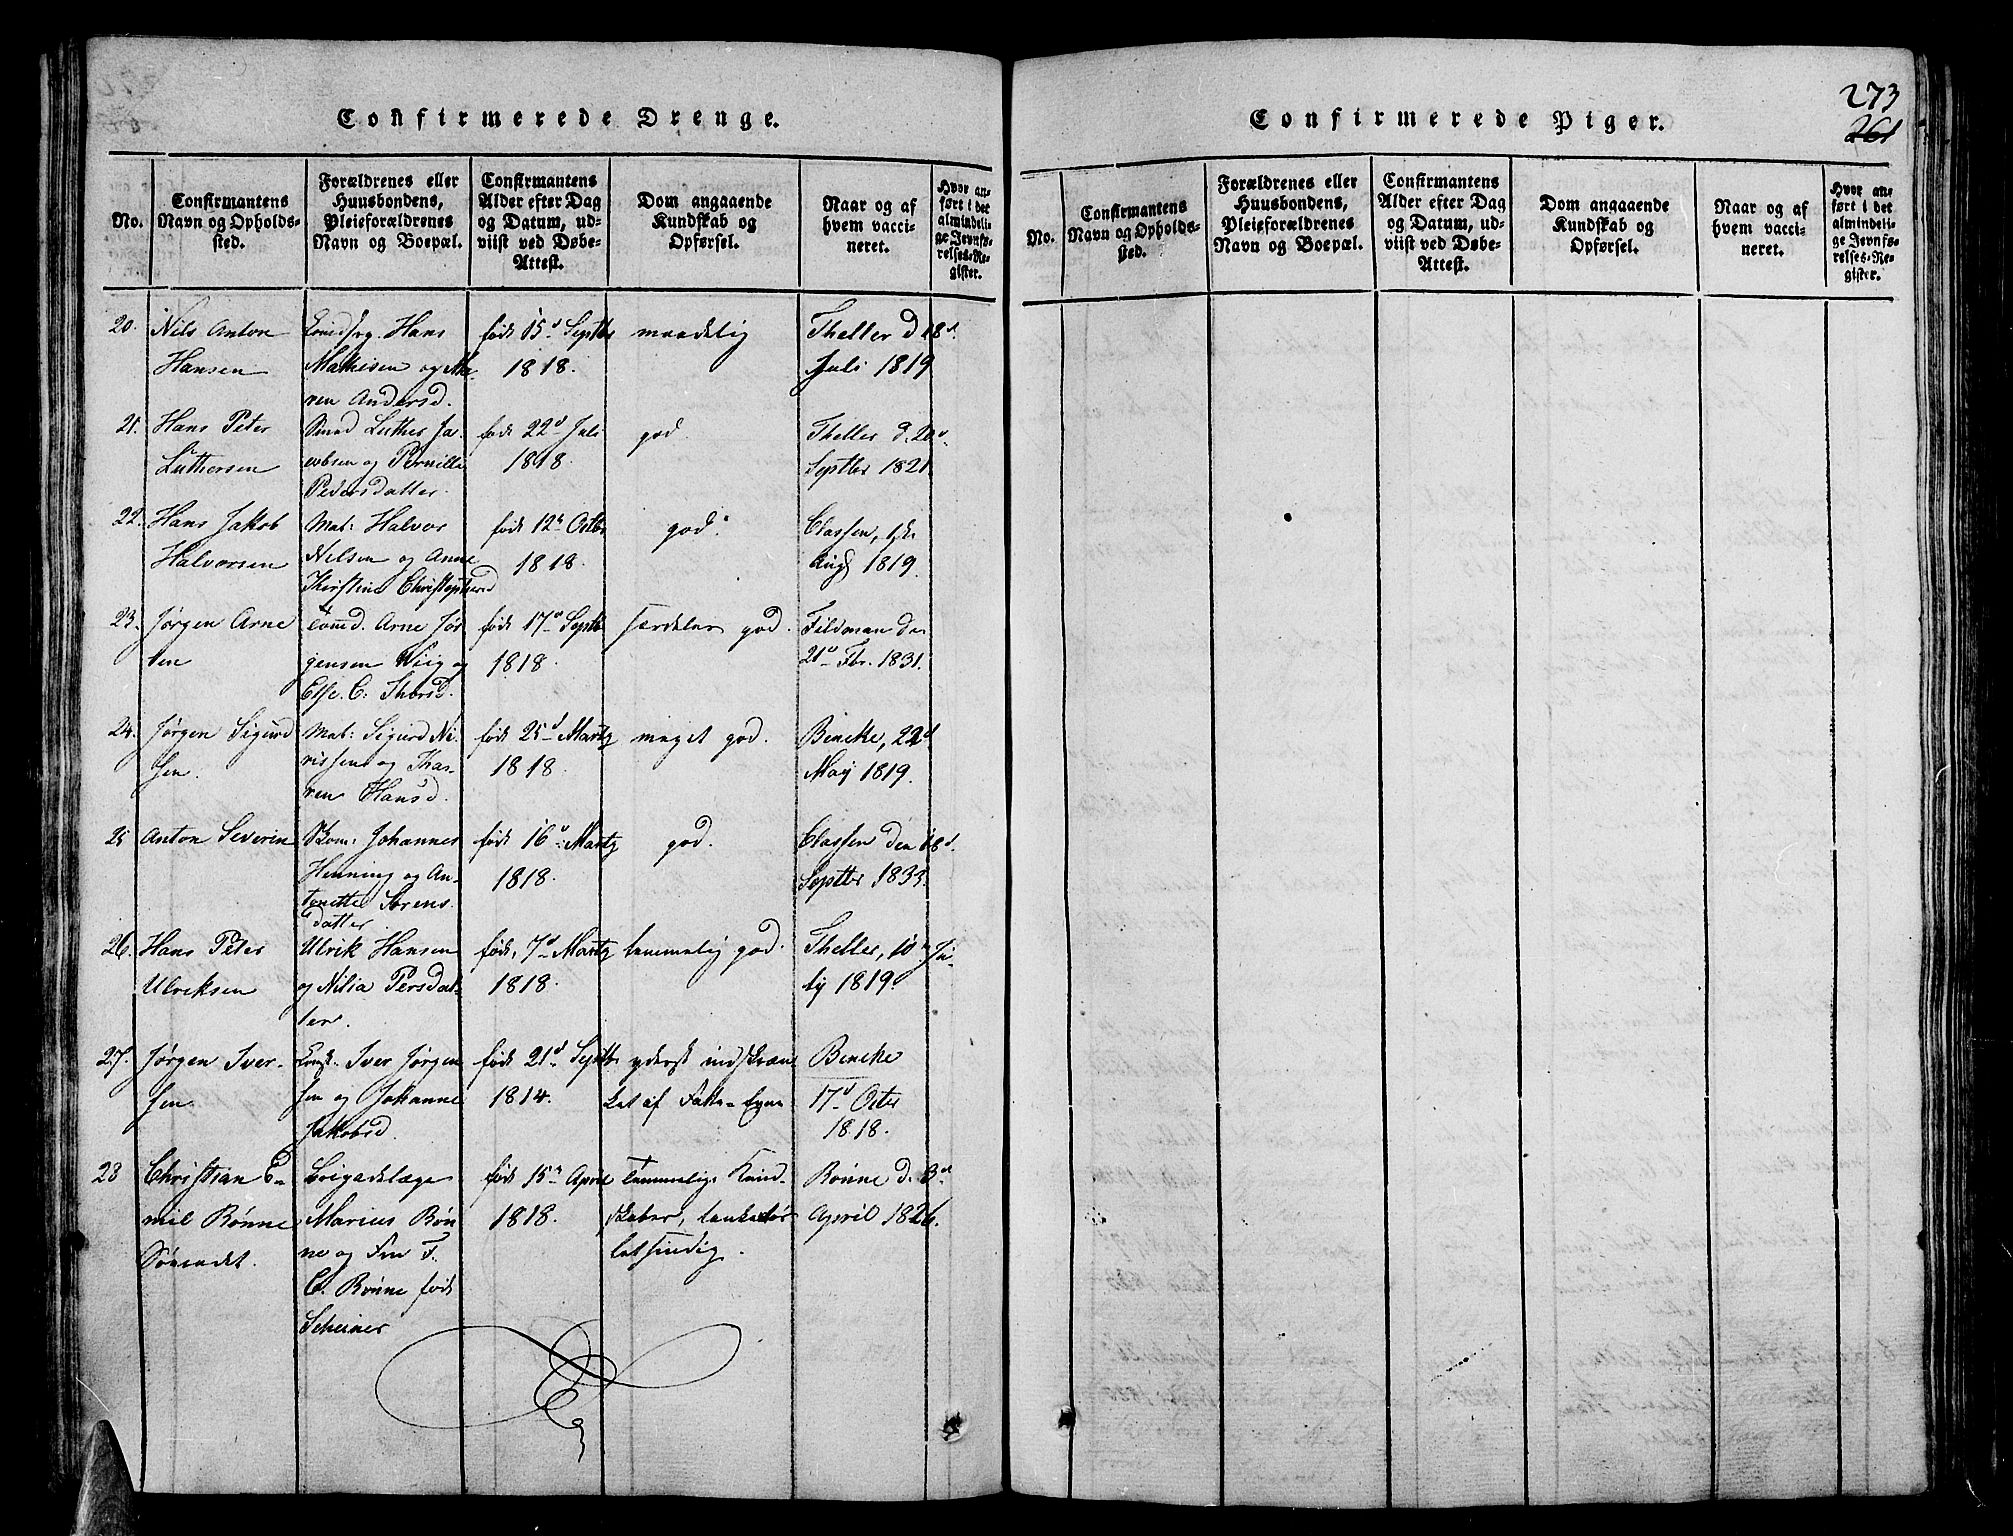 Confirmerede Drenge.
No.
Confirmantens
Navn og Opholds-
sted.
Forældrenes eller
Huusbondens,
Pleieforældrenes
Navn og Boepæl.
Confirmantens
Alder efter Dag
og Datum, ud-
viist ved Døbe-
Attest.
Dom angaaende
Kundskab og
Opførsel.
Naar og af
hvem vacci-
neret.
Hvor an-
ført i det
almindeli-
ge Jevnfø-
relses-Re-
gister.
20. Nils Anton
Hansen
Hans
Mathisen og Ma-
ren Andersd.
født 15d Septbr
1818.
maadelig
Theller d 18d
Juli 1819
21. Hans Peter
Luthersen
Smed Luther Ja-
cobsen og Pernille
Pedersdatter.
født 22d Juli
1818.
god.
Theller d. 20d
Septbr 1821.
22. Hans Jakob
Halvorsen
Mat: Halvor
Nilsen og Anne
Kirstine Christophersd
født 12n Octbr
1818.
god.
Classen,
Augs 1819.
23. Jørgen Arne
sen
Tomd. Arne Jør
gensen Wiig og
Else. C: Thorsd.
født 17d Septb
1818.
særdeles god.
Feldman den
21d Fbr. 1831.
24. Jørgen Sigurd
sen.
Mat: Sigurd Ni-
rissen og Kha-
ren Hansd.
født 25d Martz
1818.
meget god.
Bencke, 22d
May 1819.
25 Anton Severin
Skom: Johannes
Henning og An-
tonette Sørens
datter.
født 16d Martz
1818.
god.
Classen den 18d
Septbr 1833.
26. Hans Peter
Ulriksen
Ulrik Hansen
og Nilia Persdat-
ter.
født, 7d Martz
1818.
temmelig god.
Theller, 10n Ju-
ly 1819.
27. Jørgen Iver-
sen.
Iver Jørgen
sen og Johanne
Jakobsd.
født 21d Septbr
1814.
yderst indskræn
ket af Fatte-Evne
Bencke
17d Octbr
1818.
28 Christian E-
mil Rønne
Brigadelæge
Marius Røn
ne og Fru F.
C. Rønne født
Scheiner
født 15n April
1818.
Temmelig Kund-
skaber, tænksom
letsindig.
Rønne d. 3d
April 1826.
Confirmerede Piger.
273
261
No.
Confirmantens
Navn og Opholds-
sted.
Forældrenes eller
Huusbondens,
Pleieforældrenes
Navn og Boepæl.
Confirmantens
Alder efter Dag
og Datum, ud-
viist ved Døbe-
Attest.
Dom angaaende
Kundskab og
Opførsel.
Naar og af
hvem vacci-
neret.
Hvor an-
ført i det
almindeli-
ge Jevnfø-
relses-Re-
gister.